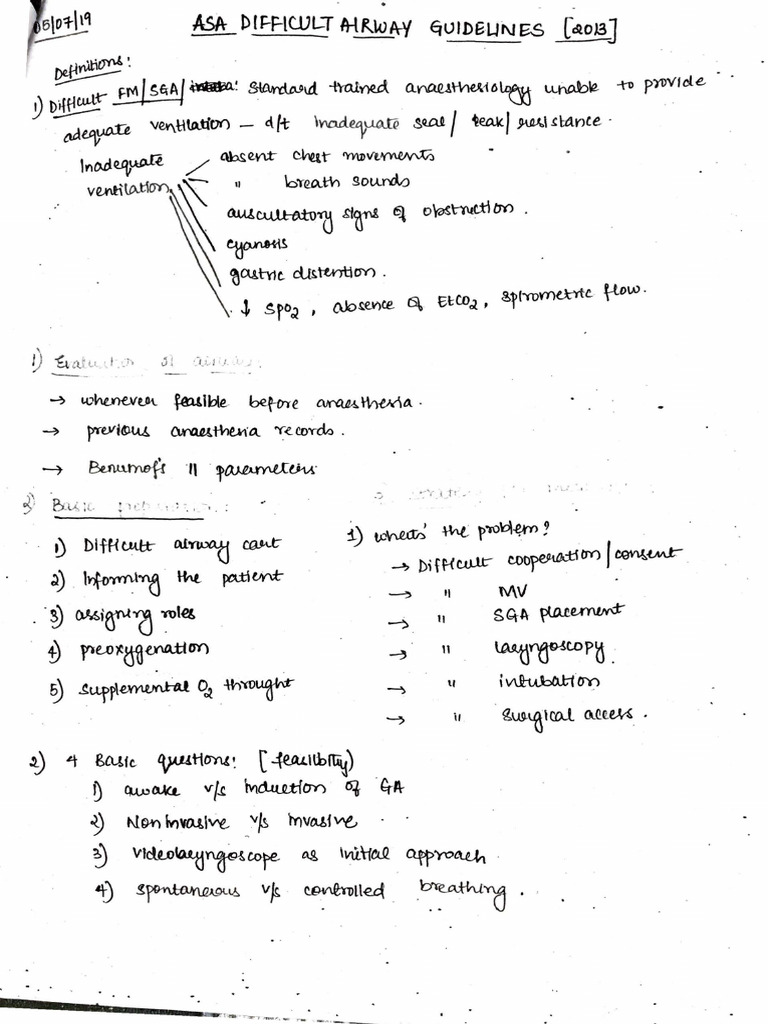 05/07/19
ASA DIFFICULT AIRWAY GUIDELINES [2013]
Definitions:
1) Difficult FM/SGA/ : Standard trained anaesthesiology unable to provide
adequate ventilation – d/t inadequate seal/ leak/ resistance.
Inadequate ventilation
absent chest movements
" breath sounds
auscultatory signs of obstruction.
cyanosis
gastric distention.
↓ SpO2, absence of EtCO2, spirometric flow.
1) Evaluation of airway.
→ whenever feasible before anaesthesia.
→ previous anaesthesia records.
→ Benumof's 11 parameters
2) Basic preparation:
1) Difficult airway cart
2) Informing the patient
3) assigning roles
4) preoxygenation
5) supplemental O2 throught
1) whats' the problem?
→ Difficult cooperation/consent
→ " MV
→ " SGA placement
→ " laryngoscopy
→ " intubation
→ " surgical access.
2) 4 Basic questions: [feasilbity)
1) awake v/s induction of GA
2) Non invasive v/s invasive
3) videolaryngoscope as initial approach
4) spontaneous v/s controlled breathing.